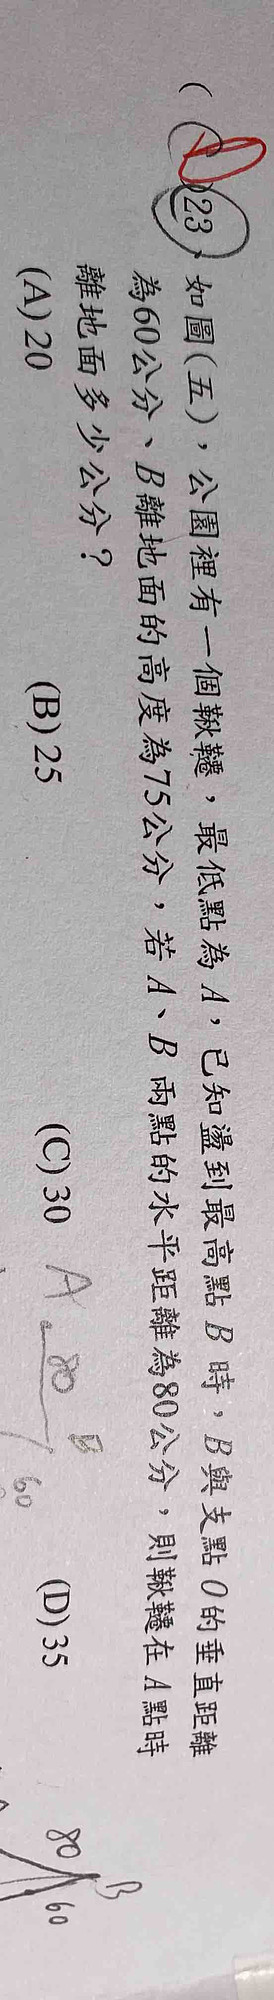 ( )23. 如圖(五)，公園裡有一個鞦韆，最低點為A，已知盪到最高點B時，B與支點O的垂直距離
為60公分、B離地面的高度為75公分，若A、B兩點的水平距離為80公分，則鞦韆在A點時
離地面多少公分？
(A)20 (B)25 (C)30 (D)35
A 80 B 60
80 B 60